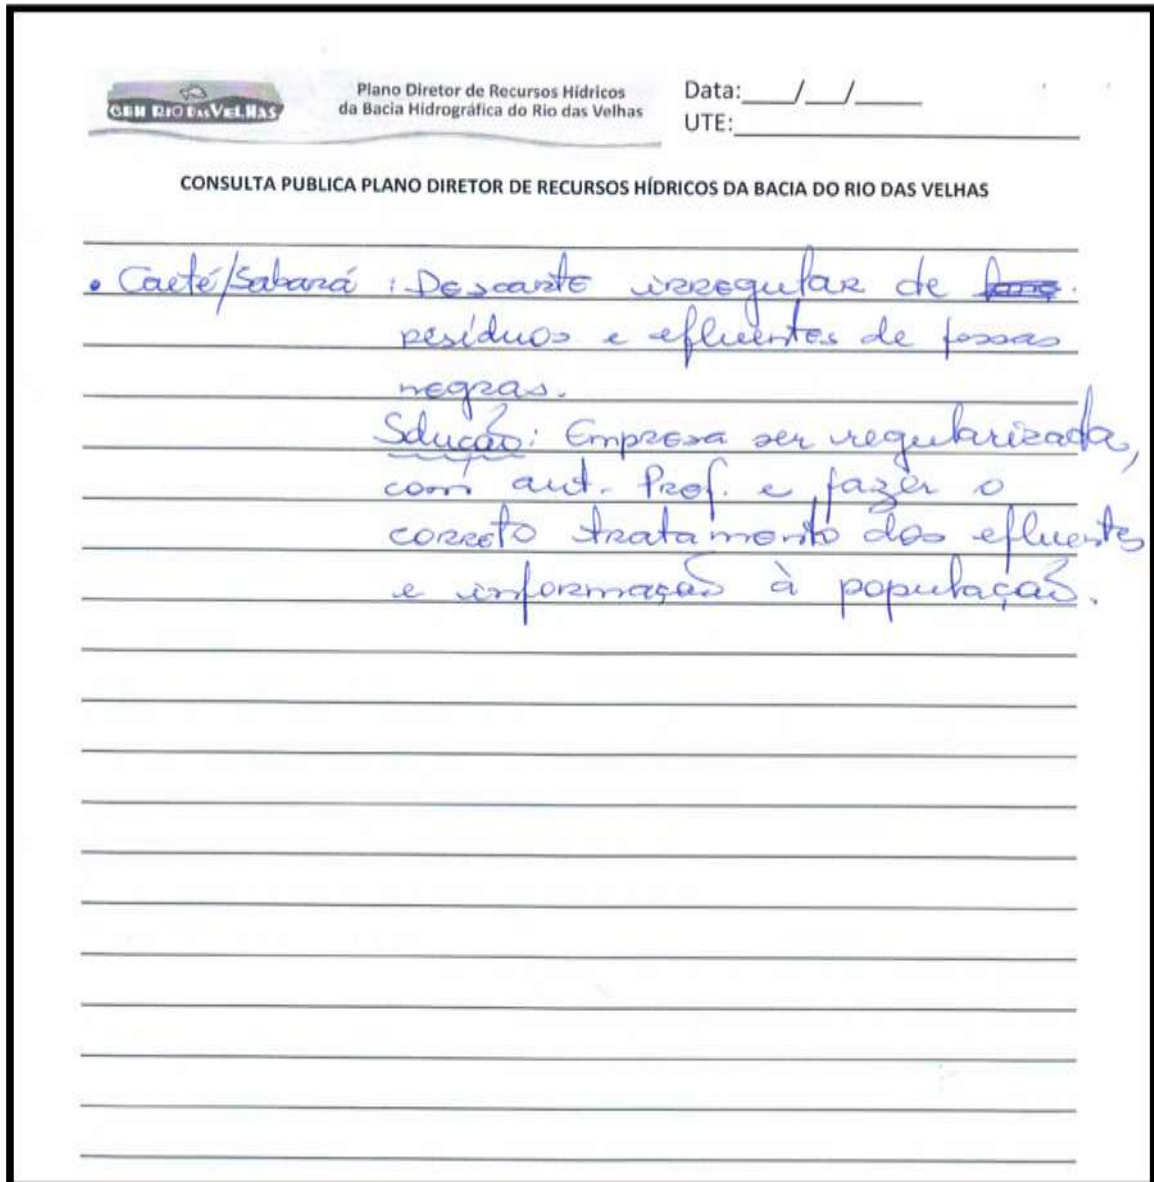 CBH RIO DAS VELHAS
Plano Diretor de Recursos Hídricos
da Bacia Hidrográfica do Rio das Velhas
Data:___/__/____
UTE:
CONSULTA PUBLICA PLANO DIRETOR DE RECURSOS HÍDRICOS DA BACIA DO RIO DAS VELHAS
• Caeté/Sabará : Descarte irregular de
resíduos e efluentes de fossas
negras.
Solução: Empresa ser regularizada,
com aut. Pref. e fazer o
correto tratamento dos efluentes
e informação à população.